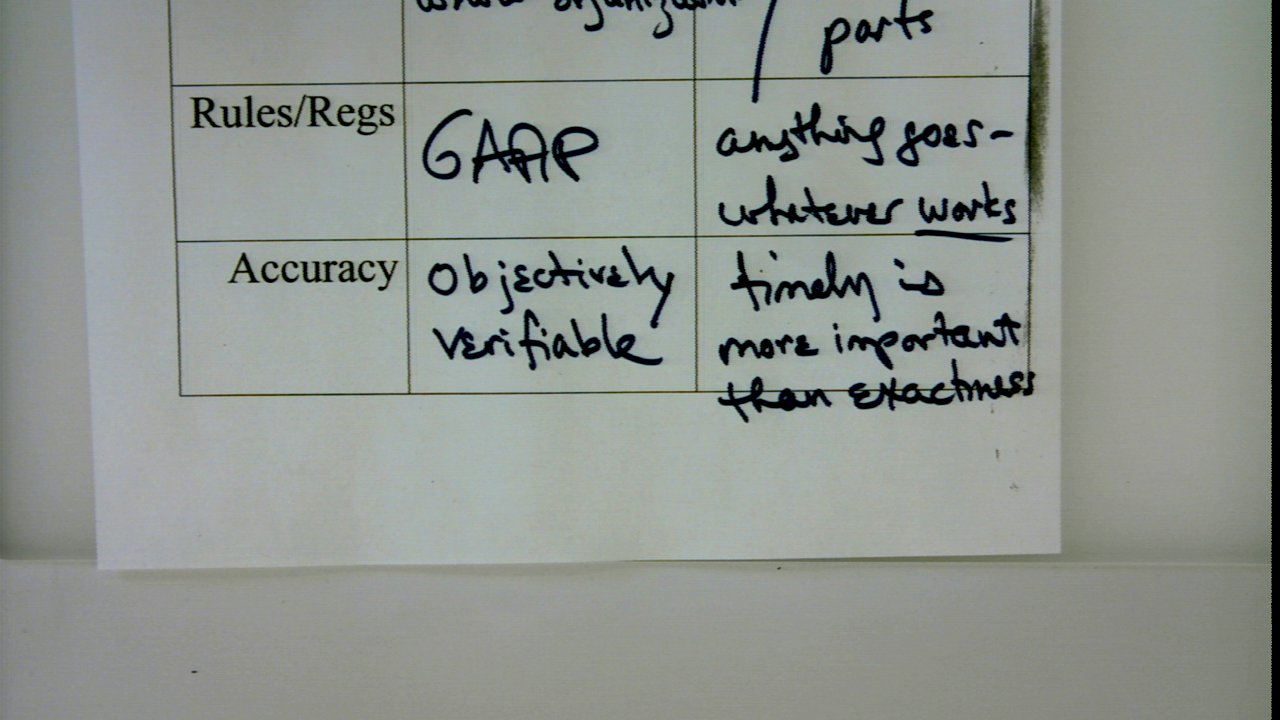 parts
Rules/Regs
GAAP
anything goes-
whatever works
Accuracy
Objectively
verifiable
timely is
more important
than exactness